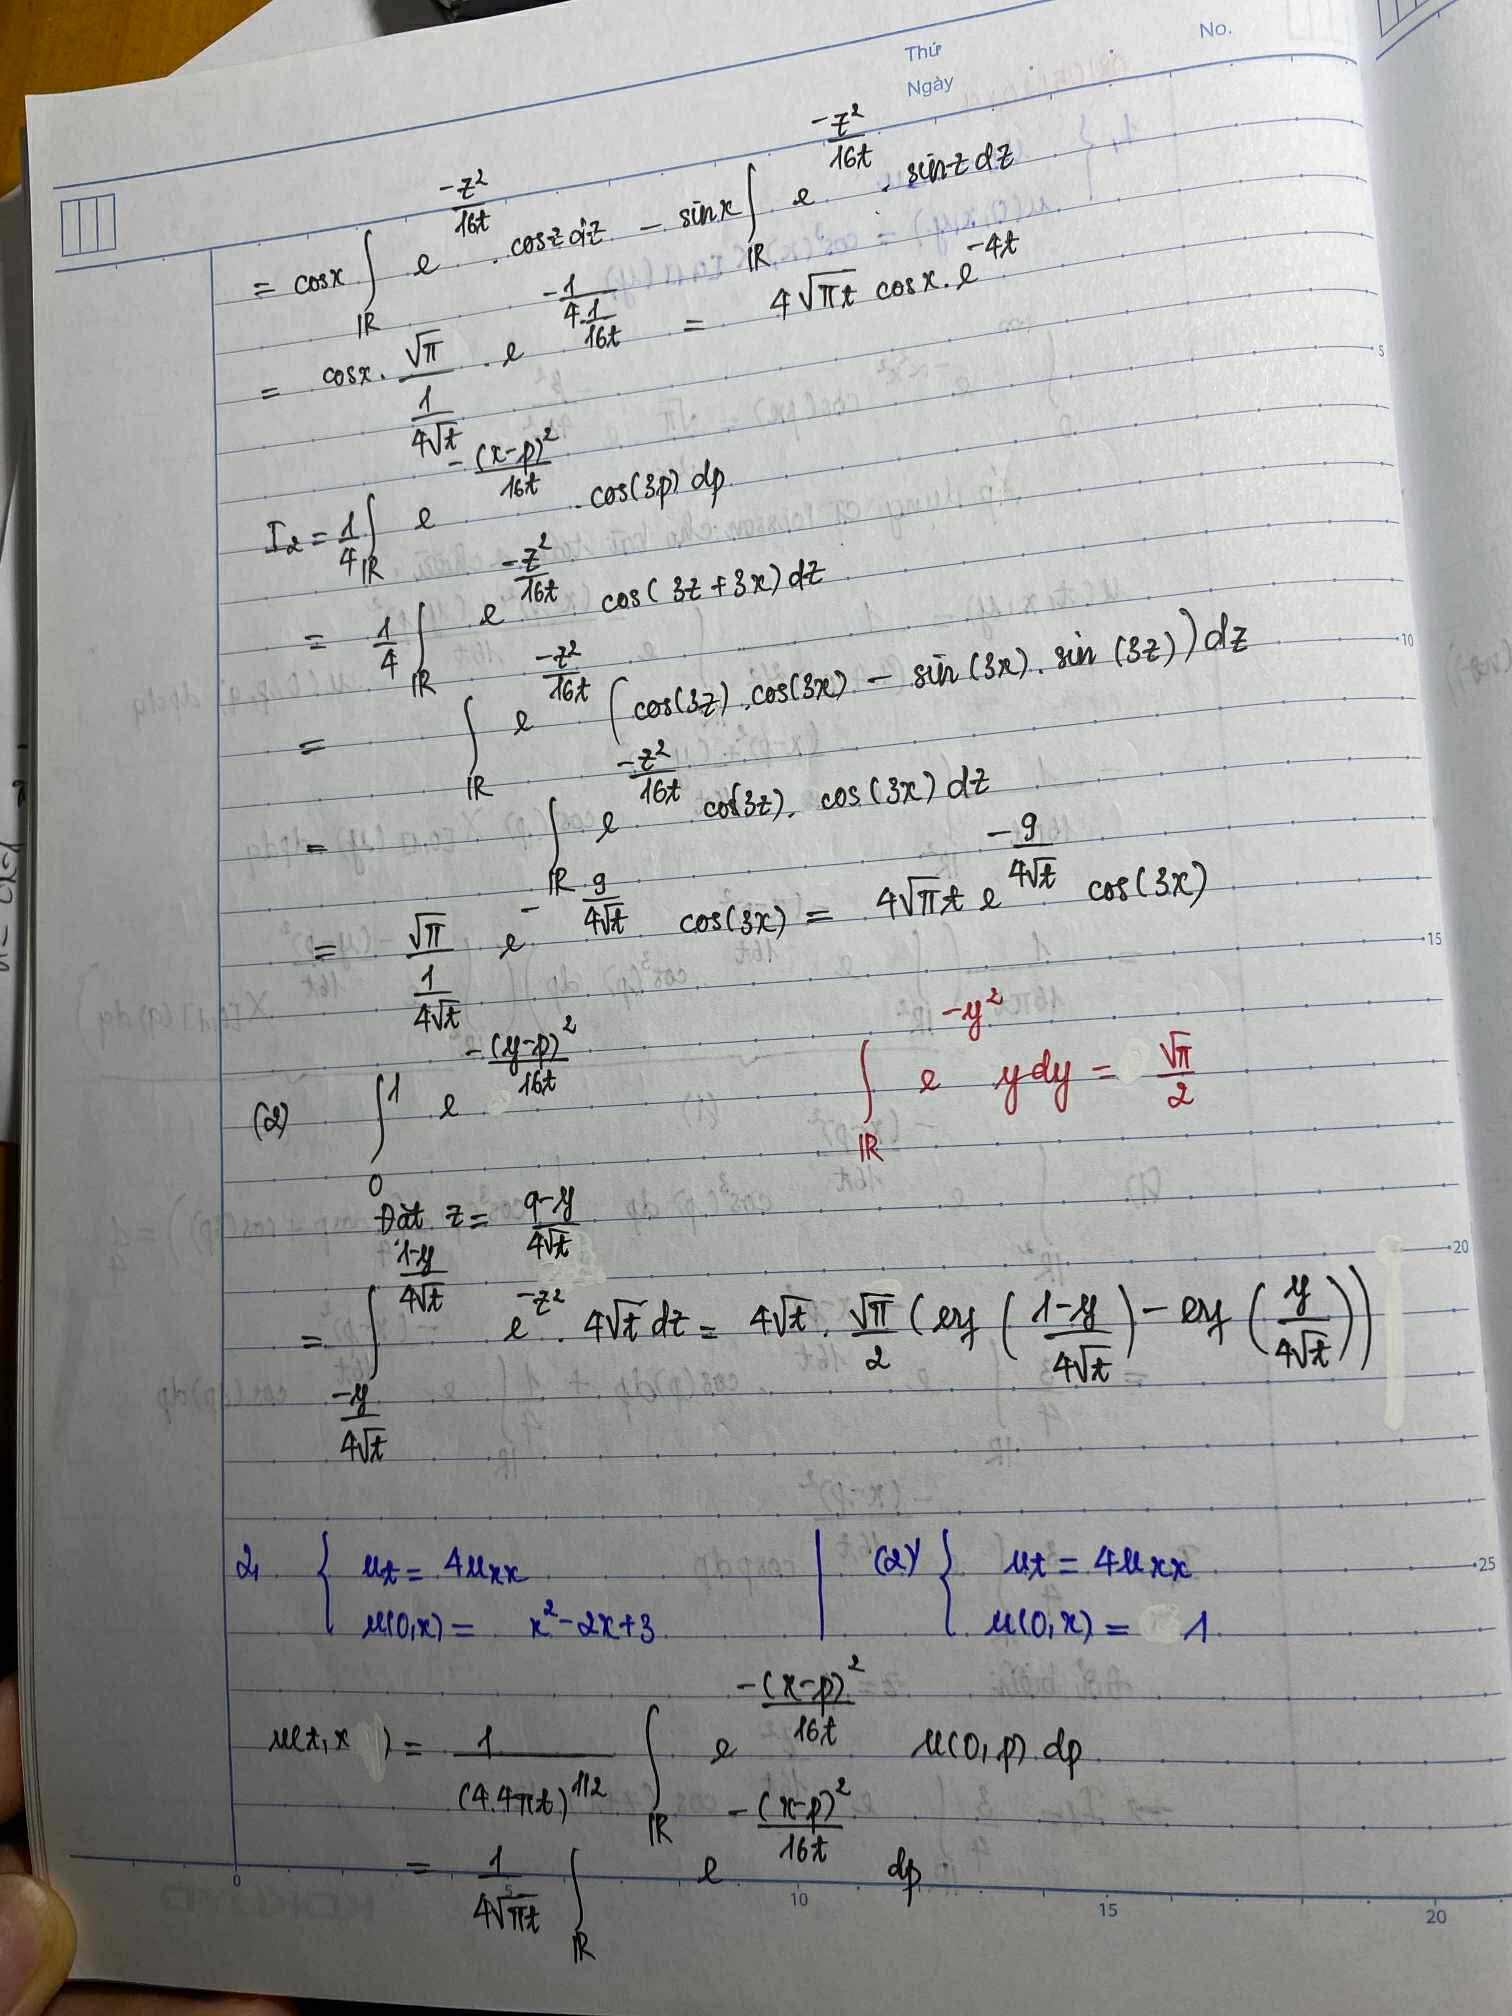 Thứ
No.
Ngày
= cosx ∫_{ℝ} e^{-z²/16t} . cosz dz - sinx ∫_{ℝ} e^{-z²/16t} . sinz dz
= cosx . √π/(1/(4√t)) . e^{-1/(4.1/16t)} = 4√πt cosx . e^{-4t}
I₂ = 1/4 ∫_{ℝ} e^{-(x-p)²/16t} . cos(3p) dp
= 1/4 ∫_{ℝ} e^{-z²/16t} cos(3z+3x) dz
= ∫_{ℝ} e^{-z²/16t} (cos(3z) . cos(3x) - sin(3x) . sin(3z)) dz
= ∫_{ℝ} e^{-z²/16t} cos(3z) . cos(3x) dz
= √π/(1/(4√t)) e^{-9/(4√t)} cos(3x) = 4√πt e^{-9/(4√t)} cos(3x)
(2) ∫_0^1 e^{-(y-p)²/16t}
∫_{ℝ} e^{-y²} y dy = √π/2
Đặt z = (q-y)/(4√t)
= ∫_{-y/(4√t)}^{(1-y)/(4√t)} e^{-z²} . 4√t dz = 4√t . √π/2 (erf((1-y)/(4√t)) - erf(y/(4√t)))
2, { ut = 4uxx
u(0,x) = x²-2x+3
(2) { ut = 4uxx
u(0,x) = 1
u(t,x) = 1/(4.4πt)^{1/2} ∫_{ℝ} e^{-(x-p)²/16t} u(0,p) dp
= 1/(4√πt) ∫_{ℝ} e^{-(x-p)²/16t} dp
5
10
15
20
25
0 5 10 15 20